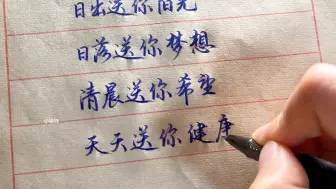 日出送你阳光
日落送你梦想
清晨送你希望
天天送你健康